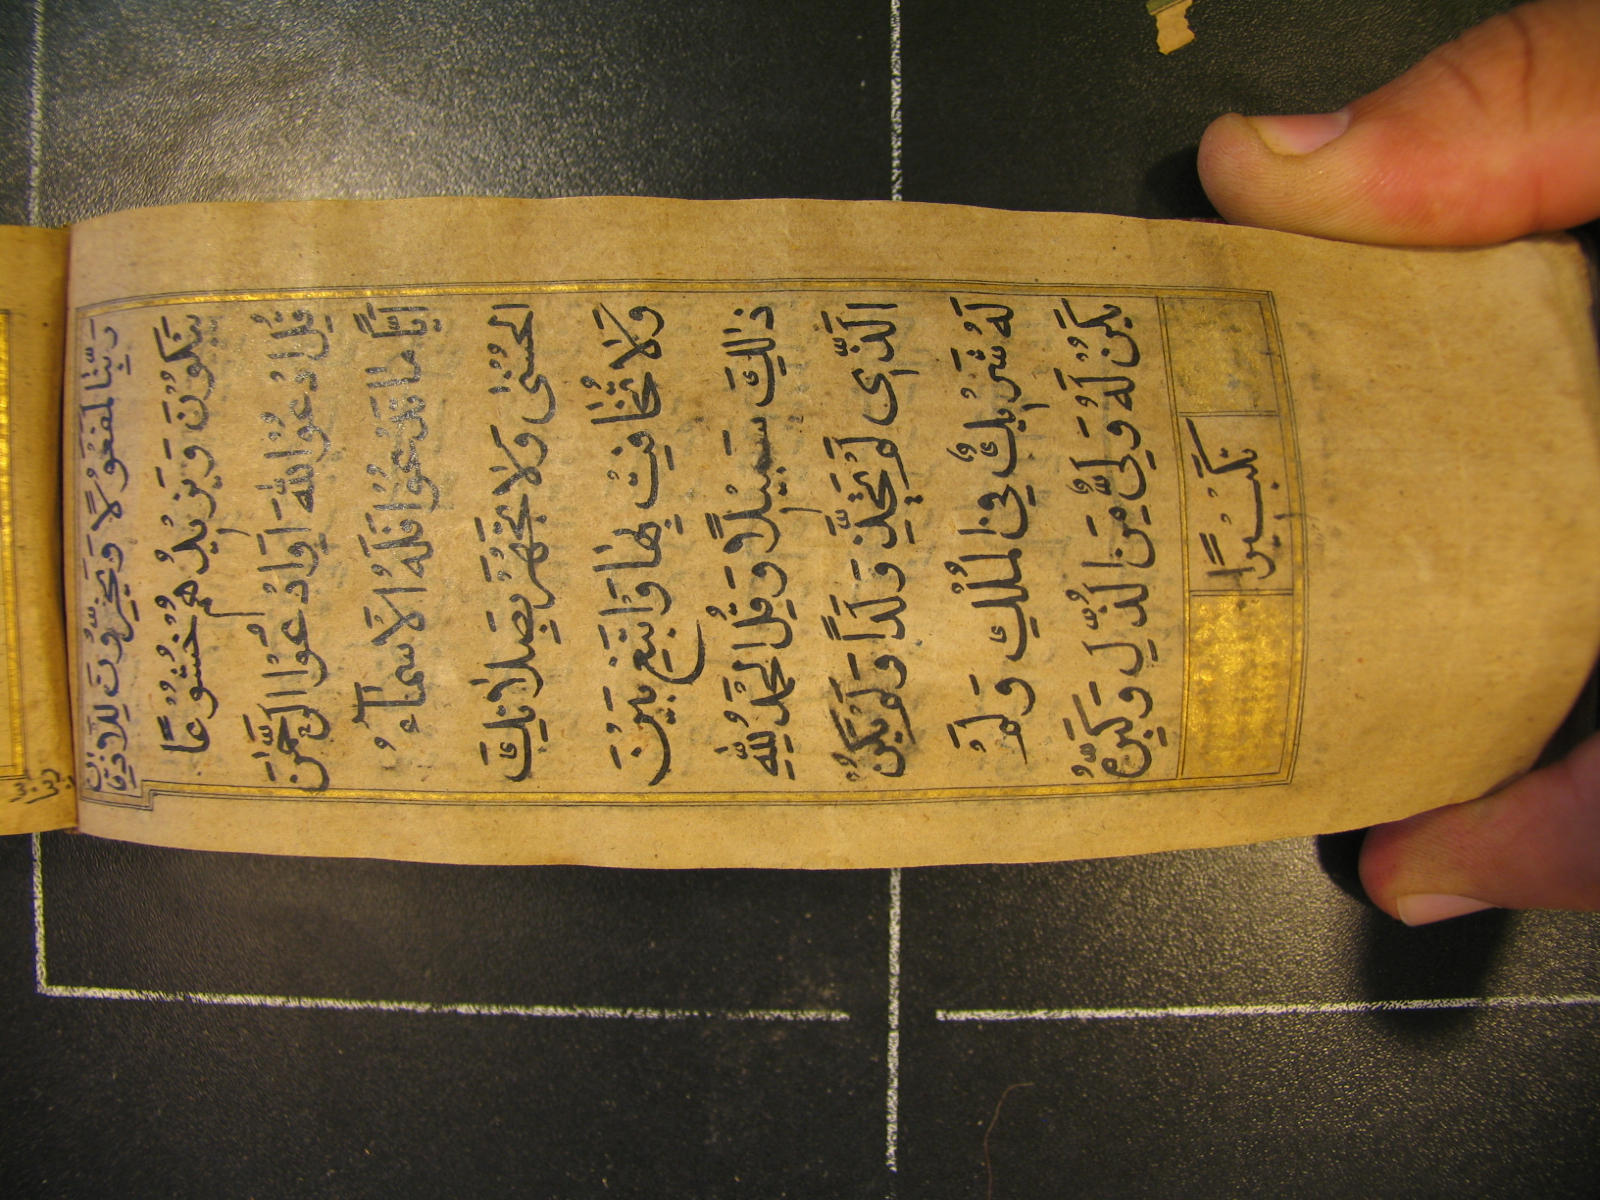 رَبِّنَا لَمَفْعُولًا وَيَخِرُّونَ لِلْاَذْقَانِ
يَبْكُونَ وَيَزِيدُهُمْ خُشُوعًا
قُلِ ادْعُوا اللّٰهَ اَوِ ادْعُوا الرَّحْمٰنَ
اَيًّا مَا تَدْعُوا فَلَهُ الْاَسْمَآءُ
الْحُسْنٰى وَلَا تَجْهَرْ بِصَلَاتِكَ
وَلَا تُخَافِتْ بِهَا وَابْتَغِ بَيْنَ
ذٰلِكَ سَبِيْلًا وَقُلِ الْحَمْدُ لِلّٰهِ
الَّذِى لَمْ يَتَّخِذْ وَلَدًا وَلَمْ يَكُنْ
لَهُ شَرِيكٌ فِي الْمُلْكِ وَلَمْ
يَكُنْ لَهُ وَلِىٌّ مِنَ الذُّلِّ وَكَبِّرْهُ
تَكْبِيْرًا